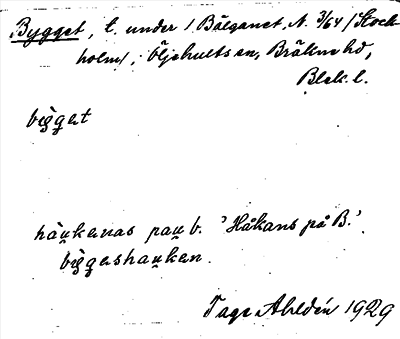 Bygget, t. under 1 Bälganet, N. 3/64 /Stock-
holm/, Öljehults sn, Bräkne hd,
Blek. l.
bìg̯gat
hàu̯kanas pau̯ b. 'Håkans på B.'
bìg̯gashau̯kan.
Tage Ahldén 1929